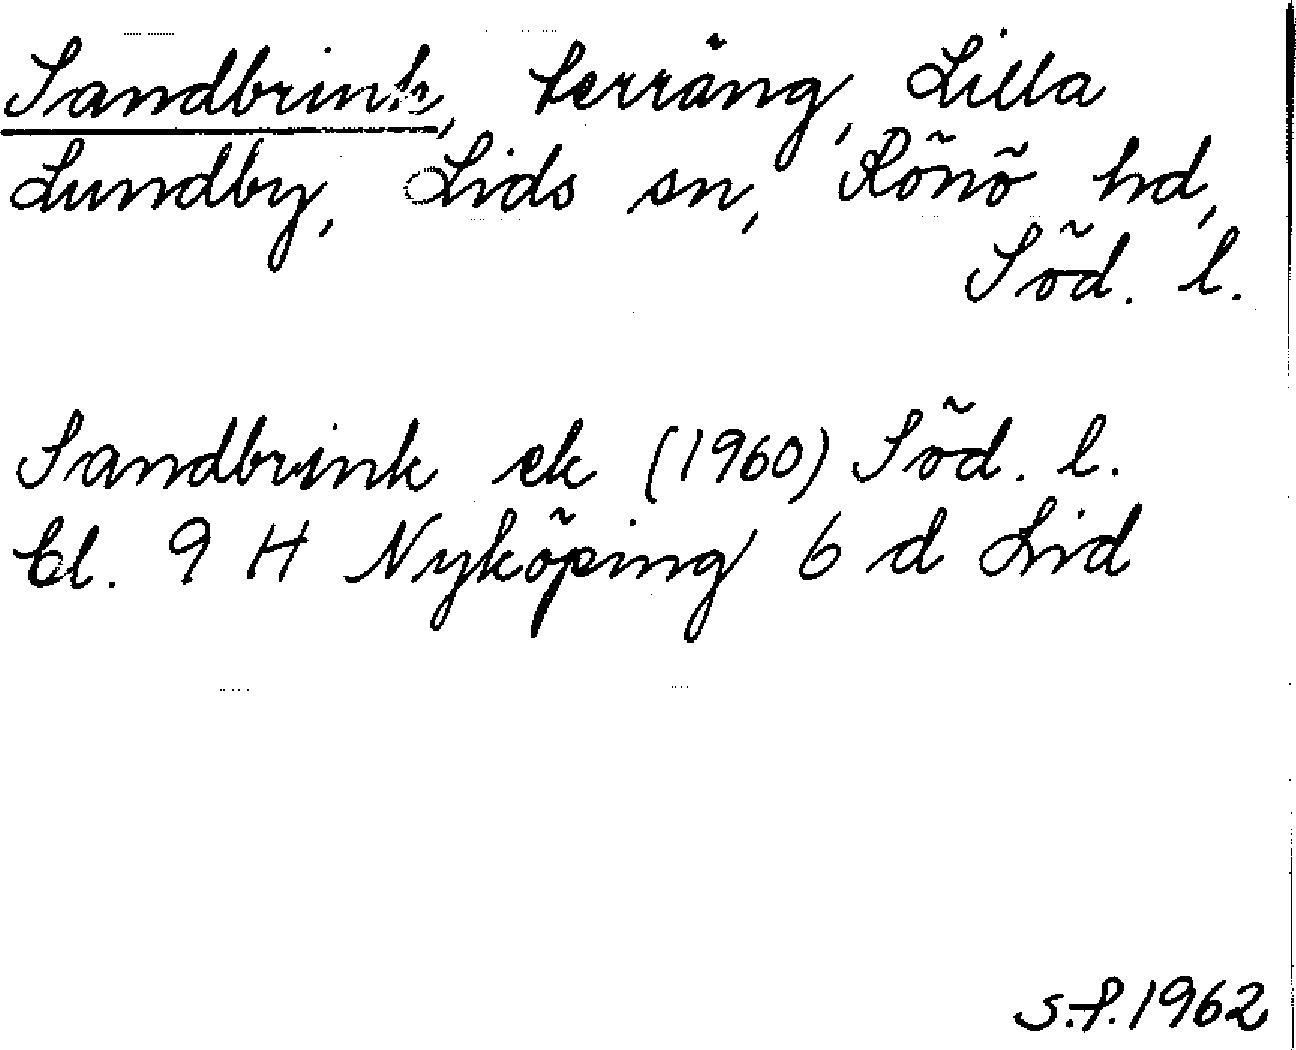 Sandbrink, terräng, Lilla
Lundby, Lids sn, Rönö hd,
Söd. l.
Sandbrink ek (1960) Söd. l.
Bl. 9 H Nyköping 6 d Lid
S.f. 1962